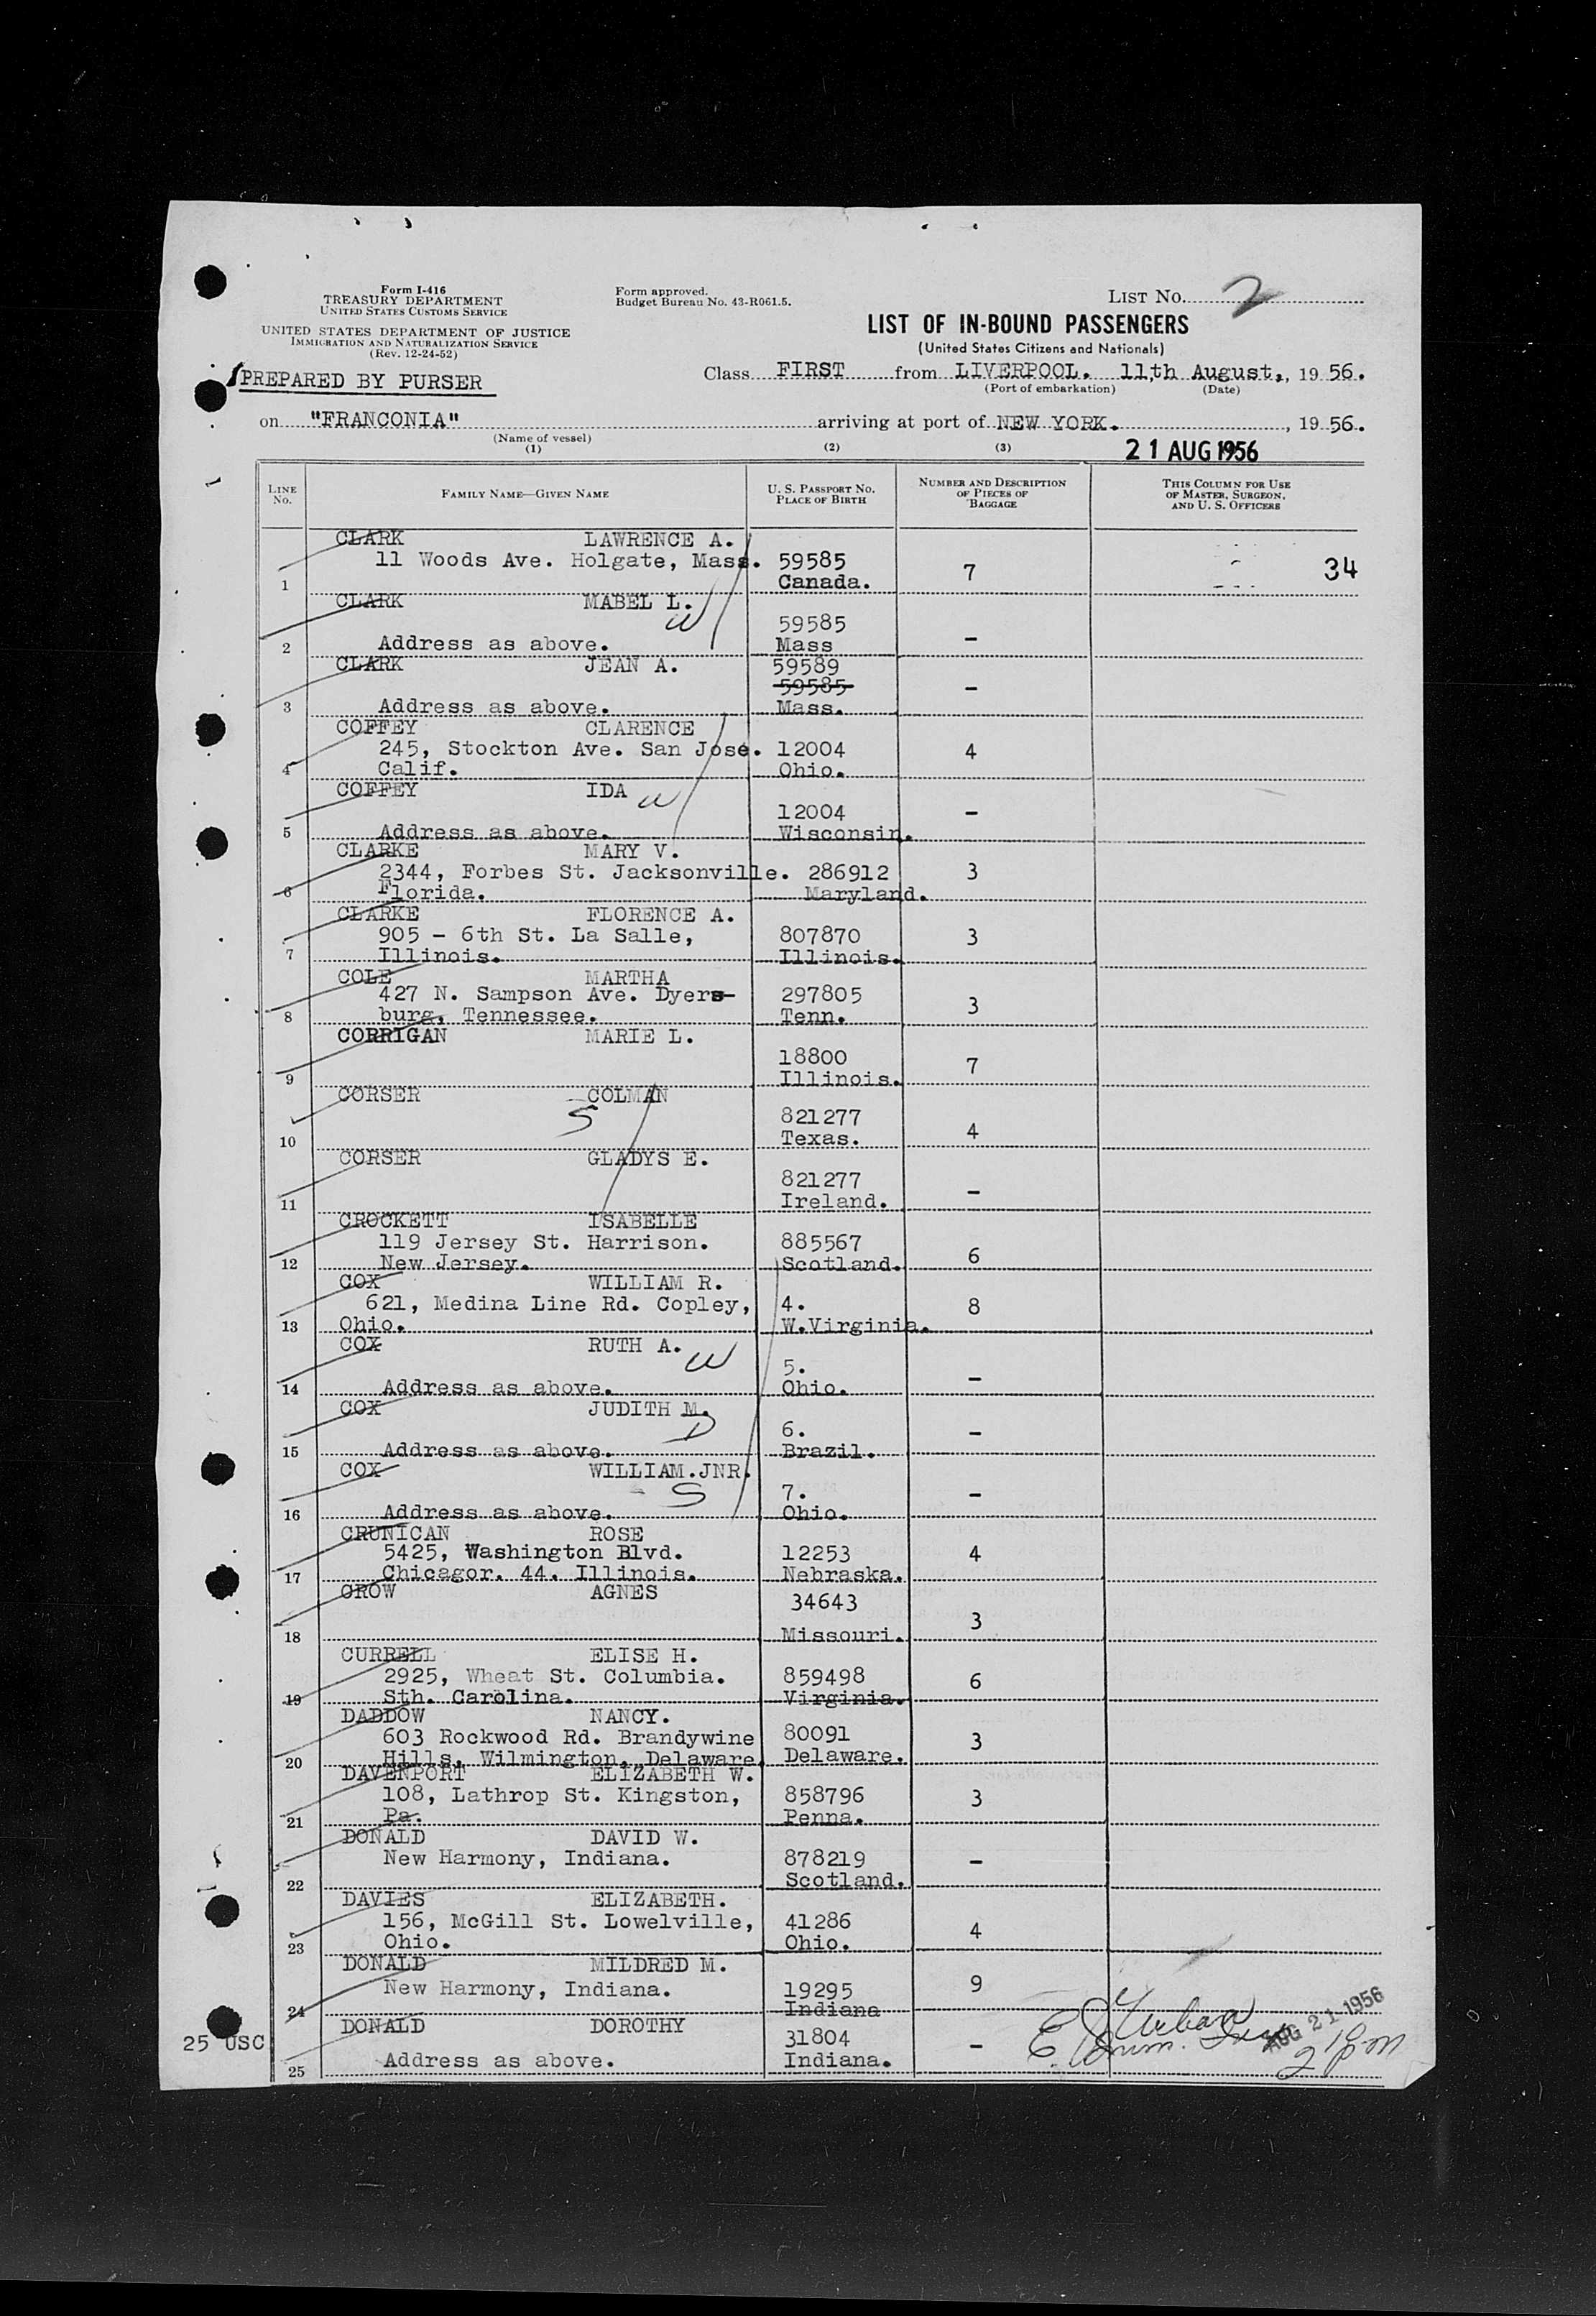 Form I-416
TREASURY DEPARTMENT
UNITED STATES CUSTOMS SERVICE
UNITED STATES DEPARTMENT OF JUSTICE
IMMIGRATION AND NATURALIZATION SERVICE
(Rev. 12-24-52)
Form approved.
Budget Bureau No. 43-R061.5.
LIST No. 2
LIST OF IN-BOUND PASSENGERS
(United States Citizens and Nationals)
PREPARED BY PURSER
Class FIRST from LIVERPOOL. 11th August, , 19 56.
(Port of embarkation) (Date)
on "FRANCONIA" arriving at port of NEW YORK. , 19 56.
(Name of vessel)
(1) (2) (3)
21 AUG 1956
LINE No. FAMILY NAME—GIVEN NAME U. S. PASSPORT NO. PLACE OF BIRTH NUMBER AND DESCRIPTION OF PIECES OF BAGGAGE THIS COLUMN FOR USE OF MASTER, SURGEON, AND U. S. OFFICERS
CLARK LAWRENCE A.
11 Woods Ave. Holgate, Mass. 59585
1 Canada. 7 34
CLARK MABEL L.
W
59585
2 Address as above. Mass –
CLARK JEAN A. 59589
59585 –
3 Address as above. Mass.
COFFEY CLARENCE
245, Stockton Ave. San Jose. 12004 4
4 Calif. Ohio.
COFFEY IDA W
12004 –
5 Address as above. Wisconsin.
CLARKE MARY V.
2344, Forbes St. Jacksonville. 286912 3
6 Florida. Maryland.
CLARKE FLORENCE A.
905 – 6th St. La Salle, 807870 3
7 Illinois. Illinois.
COLE MARTHA
427 N. Sampson Ave. Dyers- 297805 3
8 burg, Tennessee. Tenn.
CORRIGAN MARIE L.
18800 7
9 Illinois.
CORSER COLMAN
S 821277
10 Texas. 4
CORSER GLADYS E.
821277 –
11 Ireland.
CROCKETT ISABELLE
119 Jersey St. Harrison. 885567 6
12 New Jersey. Scotland.
COX WILLIAM R.
621, Medina Line Rd. Copley, 4. 8
13 Ohio. W.Virginia.
COX RUTH A. W
5. –
14 Address as above. Ohio.
COX JUDITH M.
D 6. –
15 Address as above. Brazil.
COX WILLIAM.JNR.
S 7. –
16 Address as above. Ohio.
CRUNICAN ROSE
5425, Washington Blvd. 12253 4
17 Chicagor. 44. Illinois. Nebraska.
CROW AGNES 34643
3
18 Missouri.
CURRELL ELISE H.
2925, Wheat St. Columbia. 859498 6
19 Sth. Carolina. Virginia.
DADDOW NANCY.
603 Rockwood Rd. Brandywine 80091 3
20 Hills, Wilmington, Delaware. Delaware.
DAVENPORT ELIZABETH W.
108, Lathrop St. Kingston, 858796 3
21 Pa. Penna.
DONALD DAVID W.
New Harmony, Indiana. 878219 –
22 Scotland.
DAVIES ELIZABETH.
156, McGill St. Lowelville, 41286 4
23 Ohio. Ohio.
DONALD MILDRED M.
New Harmony, Indiana. 19295 9
24 Indiana
DONALD DOROTHY
25 USC 31804 –
25 Address as above. Indiana.
AUG 21 1956
2 pm